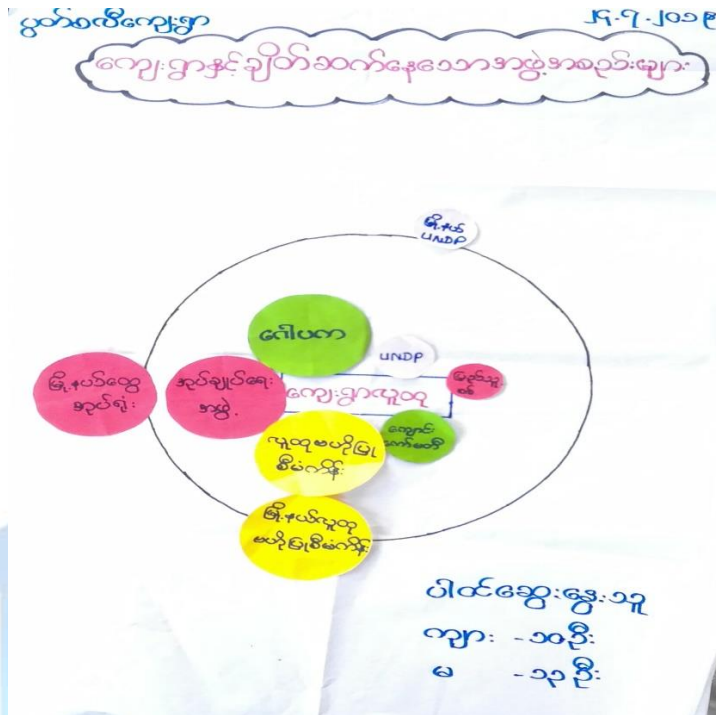 ပွတ်စလီကျေးရွာ
၂၄.၇.၂၀၁၉
ကျေးရွာနှင့်ချိတ်ဆက်နေသောအဖွဲ့အစည်းများ
မြို့နယ်
UNDP
ဂေါပက
UNDP
မြို့နယ်ထွေ
အုပ်ရုံး
အုပ်ချုပ်ရေး
အဖွဲ့
ကျေးရွာလူထု
ပြည်သူ့
ကျောင်း
ကော်မတီ
လူထုဗဟိုပြု
စီမံကိန်း
မြို့နယ်လူထု
ဗဟိုပြုစီမံကိန်း
ပါဝင်ဆွေးနွေးသူ
ကျား - ၁၀ဦး
မ - ၁၃ဦး